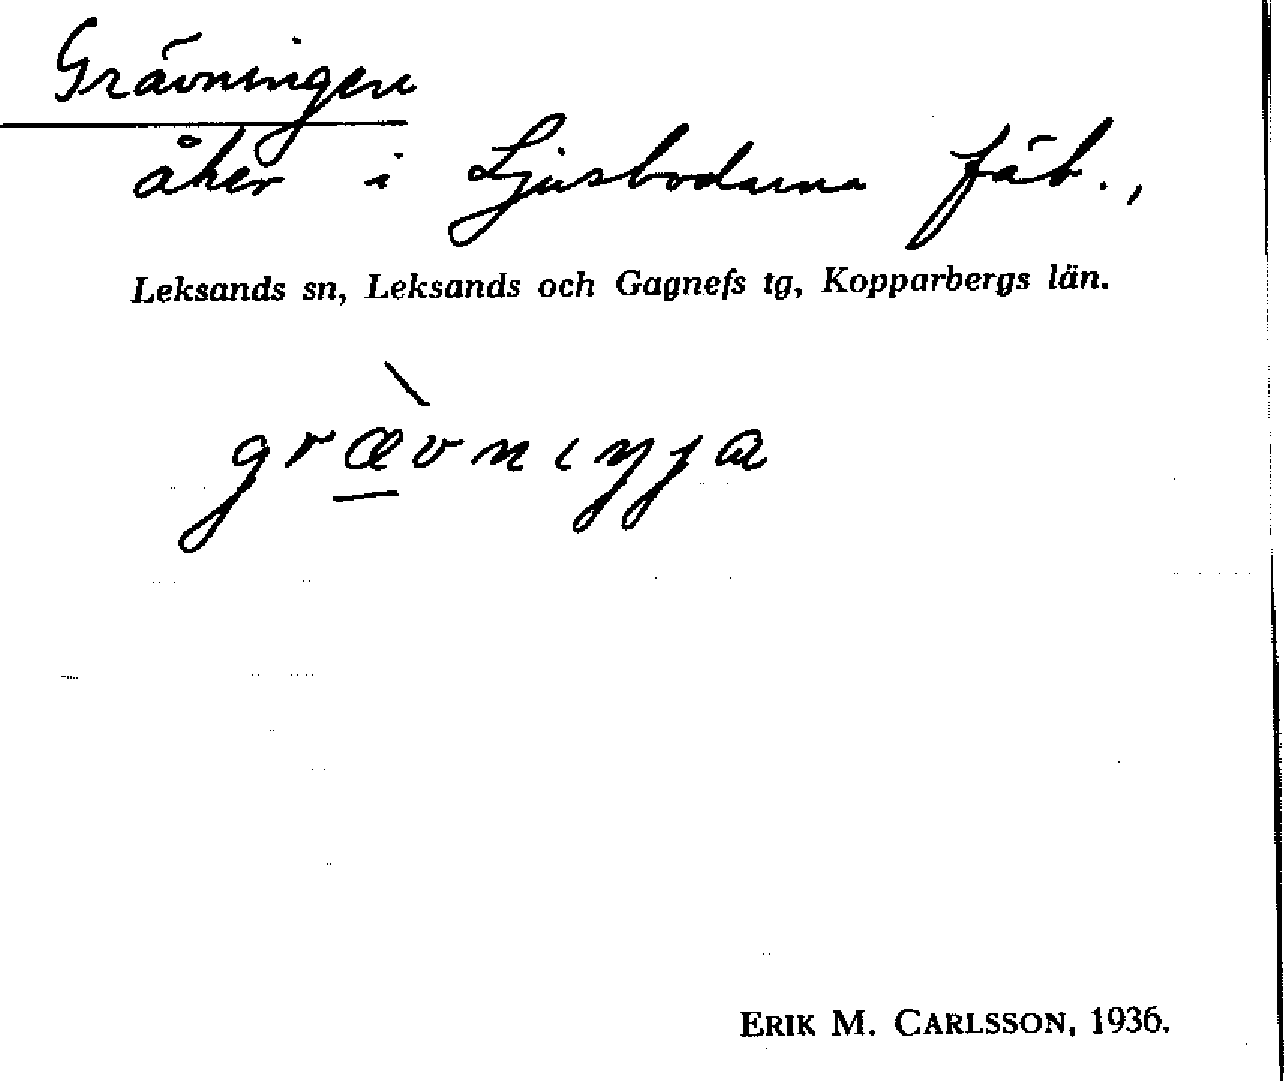 Grävningen
åker i Ljusbodarna fäb.,
Leksands sn, Leksands och Gagnefs tg, Kopparbergs län.
græ̀vnıŋɟa
ERIK M. CARLSSON, 1936.